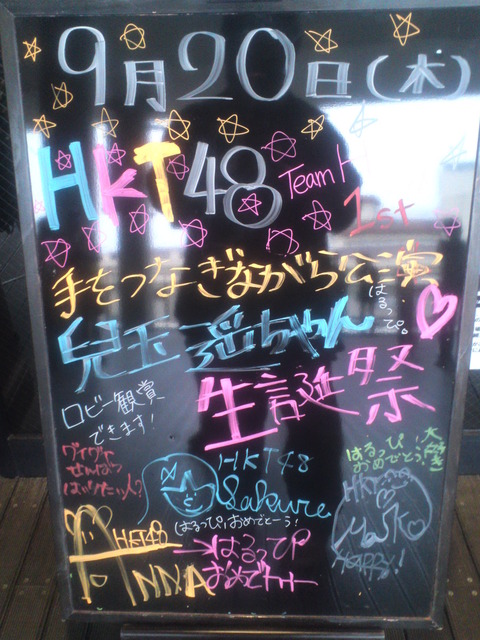 9月20日(木)
HKT48 Team H
1st
手をつなぎながら公演
はるっぴ。
兒玉遥ちゃん
生誕祭
ロビー観賞
できます!
はるっぴ!大好き
おめでとう!
HKT48
Sakura
はるっぴ、おめでとーう!
HKT48
HAPPY!
HKT48
ANNA
→はるっぴ
おめでとー